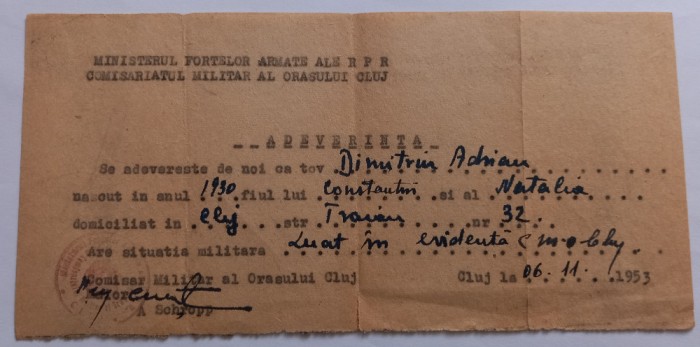 MINISTERUL FORTELOR ARMATE ALE R P R
COMISARIATUL MILITAR AL ORASULUI CLUJ
ADEVERINTA
Se adevereste de noi ca tov. Dimitriu Adrian
nascut in anul 1930 fiul lui Constantin si al Natalia
domiciliat in Cluj str Traian nr 32.
Are situatia militara Luat în evidentă C m o Cluj
Comisar Militar al Orasului Cluj Cluj la 06.11.1953
A Schropp